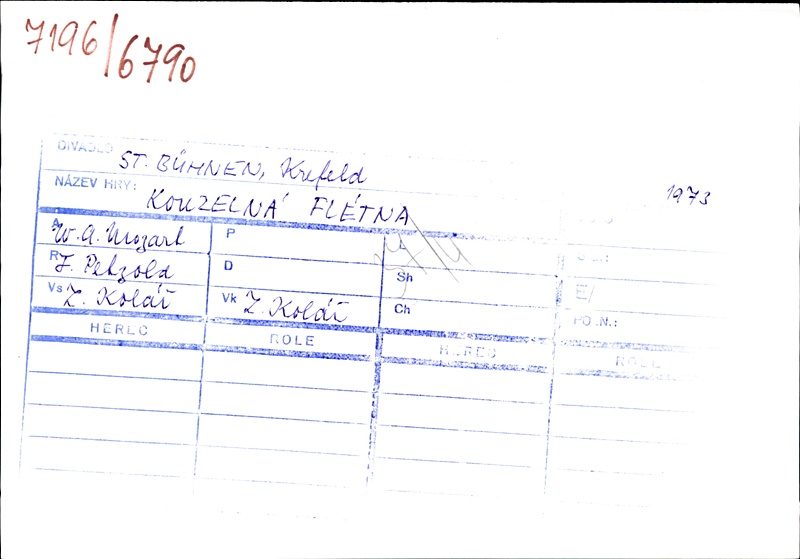 7196/6790
DIVADLO ST. BÜHNEN, Krefeld
1973
NÁZEV HRY: KOUZELNÁ FLÉTNA
A W. A. Mozart P
R J. Petzold D Sh
Vs Z. Kolář Vk Z. Kolář Ch
E/
HEREC ROLE HEREC ROLE